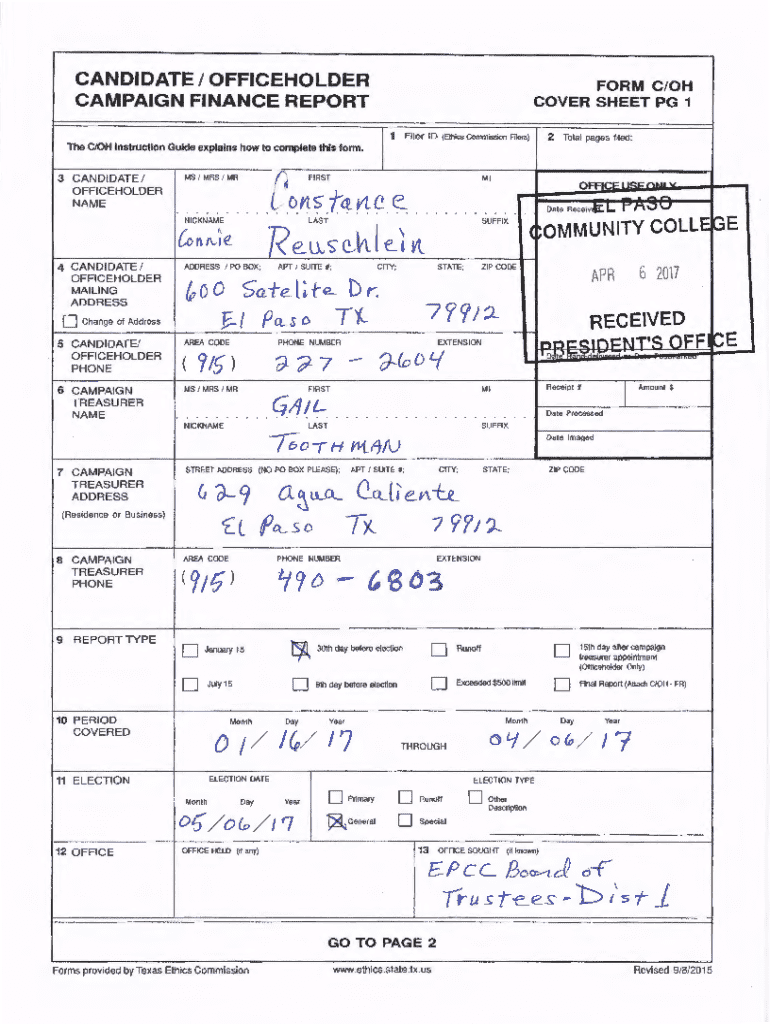 CANDIDATE / OFFICEHOLDER
CAMPAIGN FINANCE REPORT
FORM C/OH
COVER SHEET PG 1
The C/OH Instruction Guide explains how to complete this form.
1 Filer ID (Ethics Commission Filers)
2 Total pages filed:
3 CANDIDATE / OFFICEHOLDER NAME
MS / MRS / MR FIRST MI
Constance
NICKNAME LAST SUFFIX
Connie Reuschlein
OFFICE USE ONLY
Date Received
EL PASO
COMMUNITY COLLEGE
APR 6 2017
RECEIVED
PRESIDENT'S OFFICE
Date Hand-delivered or Date Postmarked
4 CANDIDATE / OFFICEHOLDER MAILING ADDRESS
Change of Address
ADDRESS / PO BOX; APT / SUITE #; CITY; STATE; ZIP CODE
600 Satelite Dr.
El Paso TX 79912
5 CANDIDATE/ OFFICEHOLDER PHONE
AREA CODE PHONE NUMBER EXTENSION
(915) 227 - 2604
6 CAMPAIGN TREASURER NAME
MS / MRS / MR FIRST MI
GAIL
NICKNAME LAST SUFFIX
TOOTHMAN
Receipt # Amount $
Date Processed
Date Imaged
7 CAMPAIGN TREASURER ADDRESS
(Residence or Business)
STREET ADDRESS (NO PO BOX PLEASE); APT / SUITE #; CITY; STATE; ZIP CODE
629 Agua Caliente
El Paso TX 79912
8 CAMPAIGN TREASURER PHONE
AREA CODE PHONE NUMBER EXTENSION
(915) 490 - 6803
9 REPORT TYPE
January 15
30th day before election
Runoff
15th day after campaign treasurer appointment (Officeholder Only)
July 15
8th day before election
Exceeded $500 limit
Final Report (Attach C/OH - FR)
10 PERIOD COVERED
Month Day Year
01/ 16/ 17
THROUGH
Month Day Year
04/ 06/ 17
11 ELECTION
ELECTION DATE
Month Day Year
05/06/17
ELECTION TYPE
Primary
Runoff
Other Description
General
Special
12 OFFICE
OFFICE HELD (if any)
13 OFFICE SOUGHT (if known)
EPCC Board of
Trustees - Dist 1
GO TO PAGE 2
Forms provided by Texas Ethics Commission
www.ethics.state.tx.us
Revised 9/8/2015